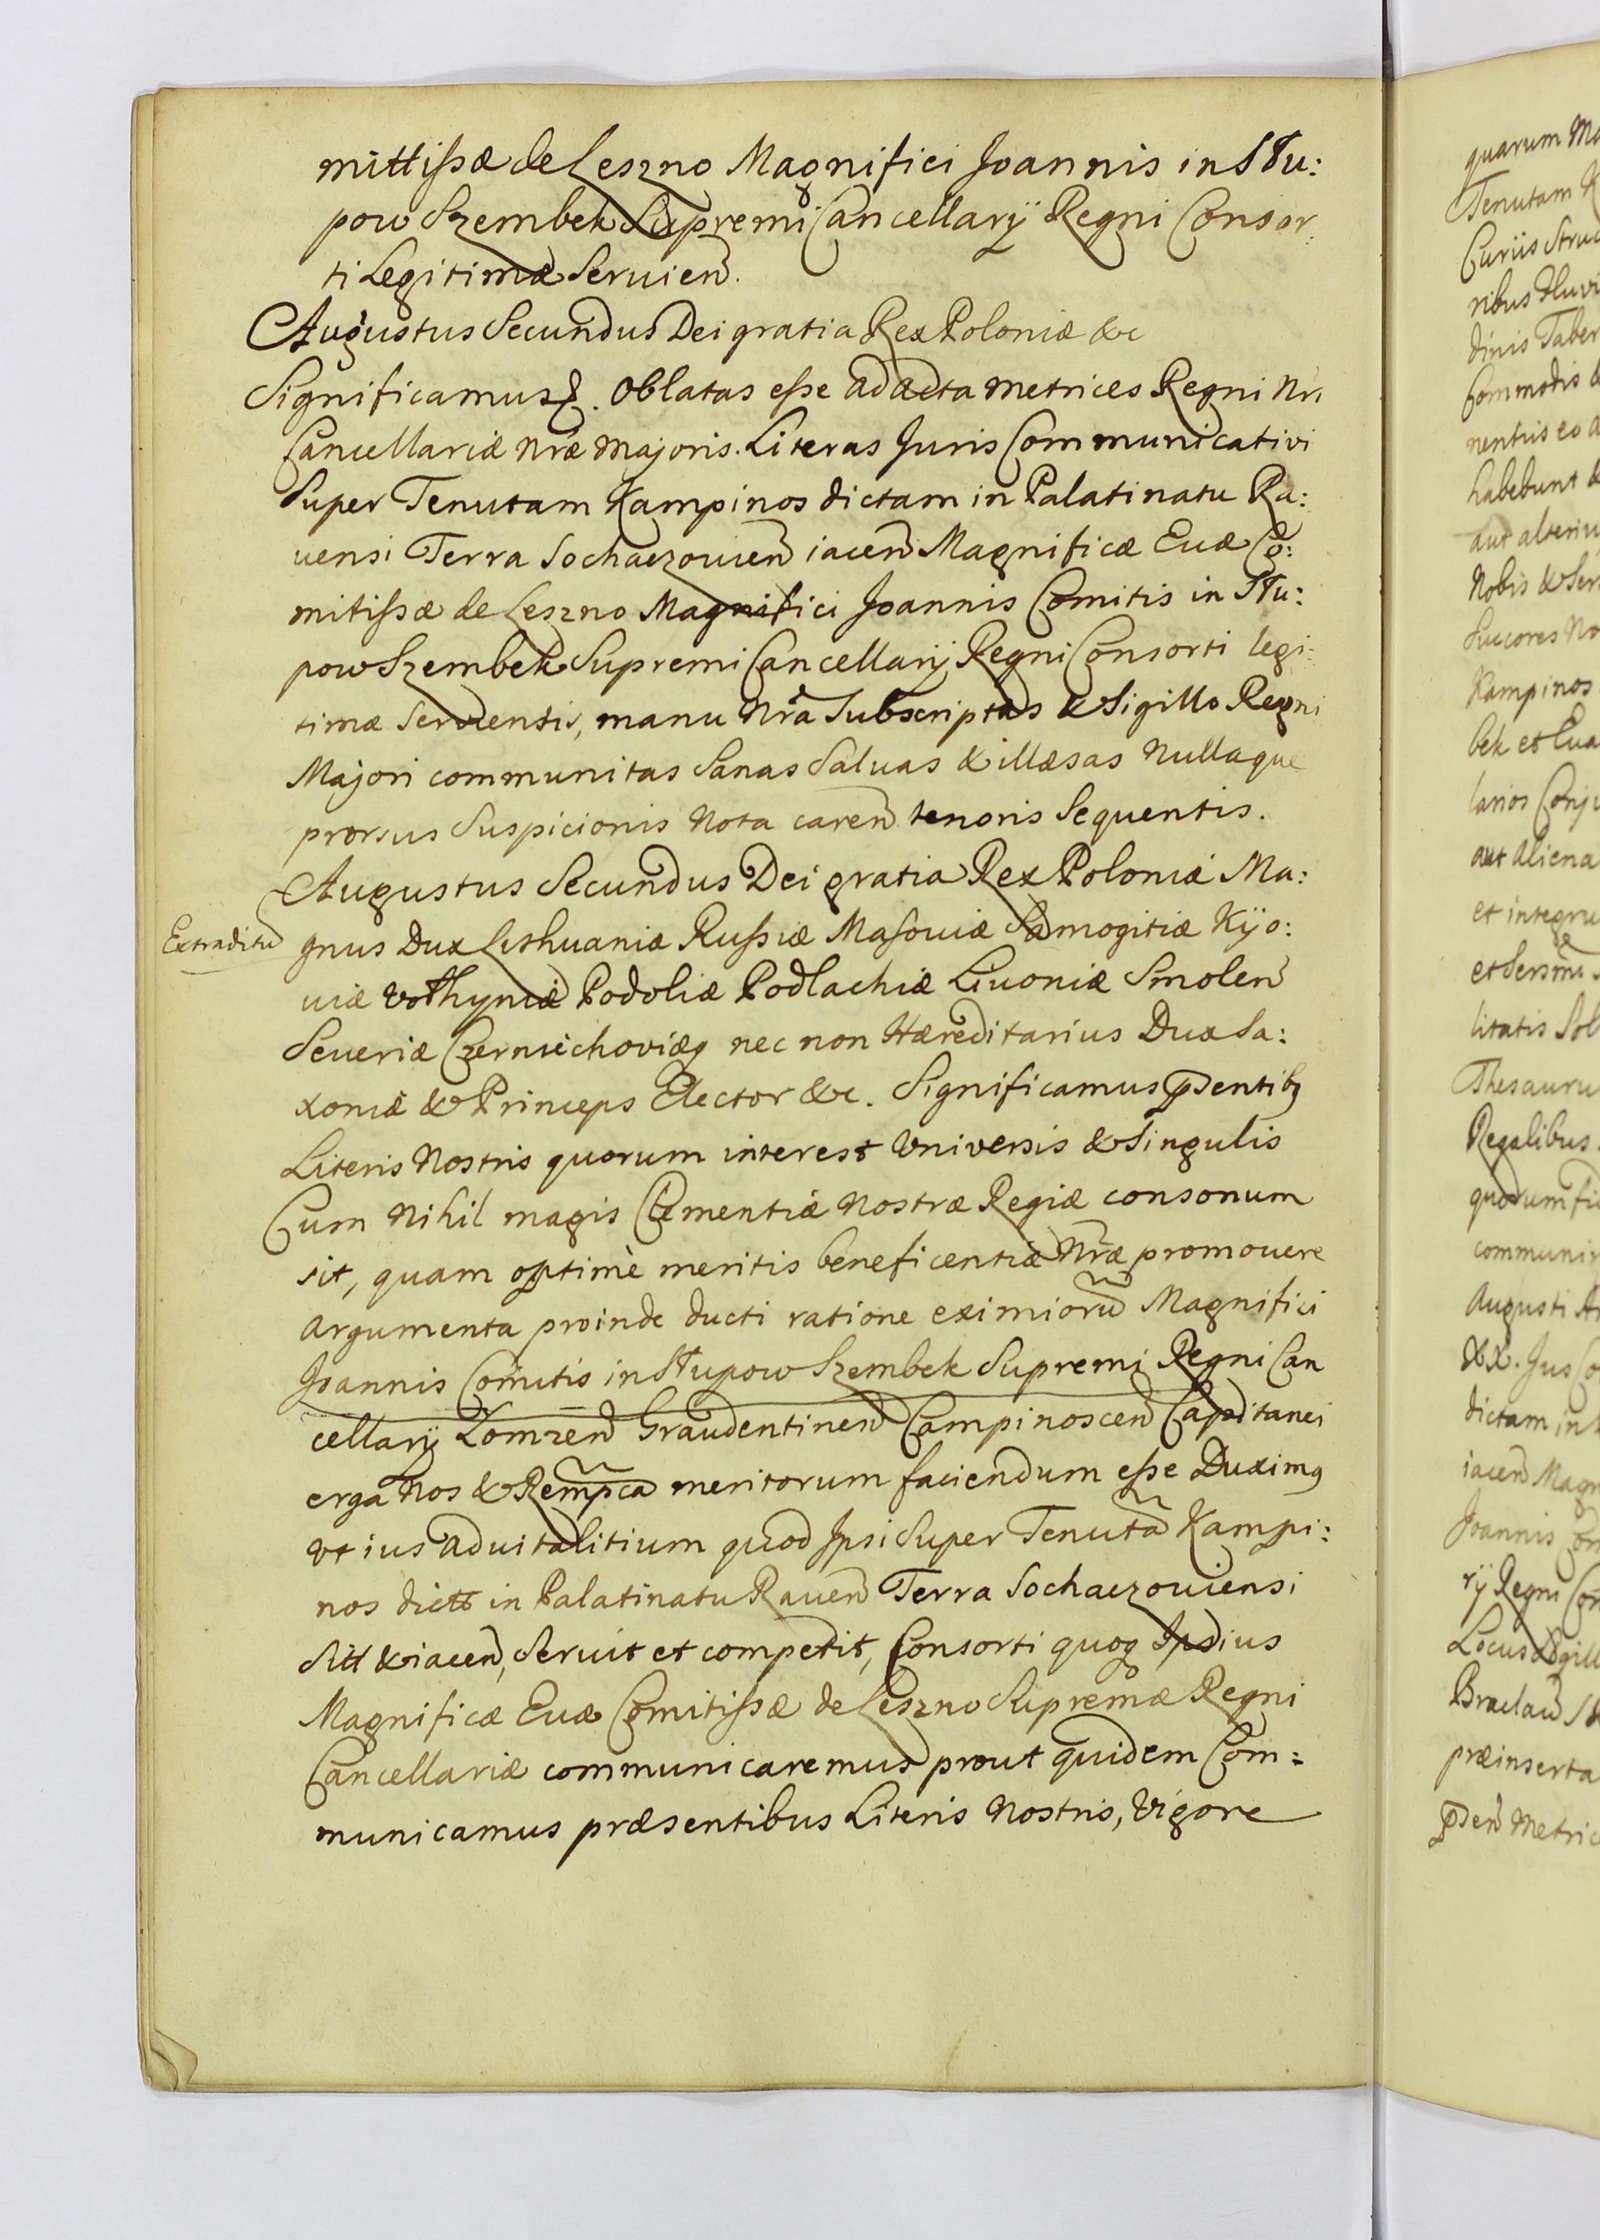 mittissæ de Leszno Magnifici Joannis in Słu:
pow Szembek Supremi Cancellarij Regni Consor:
ti Legitimæ Seruien̄.
Augustus Secundus Dei gratia Rex Poloniæ &c
Significamus &. Oblatas esse ad Acta Metrices Regni Nri
Cancellariæ Nræ Majoris. Literas Juris Communicativi
Super Tenutam Kampinos dictam in Palatinatu Ra:
uensi Terra Sochaczouien̄ iacen̄ Magnificæ Euæ Co:
mitissæ de Leszno Magnifici Joannis Comitis in Słu:
pow Szembek Supremi Cancellarij Regni Consorti legi:
timæ Seruientis, manu Nra Subscriptas & Sigillo Regni
Majori communitas Sanas Saluas & illæsas Nullaque
prorsus Suspicionis Nota caren̄ tenoris Sequentis.
Augustus Secundus Dei gratia Rex Poloniæ Ma:
Extraditū
gnus Dux Lithuaniæ Russiæ Masouiæ Samogitiæ Kijo:
uiæ Vołhyniæ Podoliæ Podlachiæ Liuoniæ Smolen̄
Seueriæ Czerniechoviæq nec non Hæreditarius Dux Sa:
xoniæ & Princeps Elector &c. Significamus p̄sentibq
Literis Nostris quorum interest Universis & Singulis
Cum Nihil magis Clementiæ Nostræ Regiæ consonum
sit, quam optimè meritis beneficentiæ Nræ promouere
argumenta proinde ducti ratione eximiorū Magnifici
Joannis Comitis in Słupow Szembek Supremi Regni Can
cellarij Łomzen̄ Graudentinen̄ Campinoscen̄ Capitanei
erga Nos & Rempcā meritorum faciendum esse Duximq
vt ius aduitalitium quod Ipsi Super Tenutā Kampi:
nos dictt in Palatinatu Rauen̄ Terra Sochaczouiensi
Sitt & iacen̄, Seruit et competit, Consorti quoq Ipsius
Magnificæ Euæ Comitissæ de Leszno Supremæ Regni
Cancellariæ communicaremus prout quidem Com=
municamus præsentibus Literis Nostris, Vigore
quarum
Tenutam
ribus
dinis
Commodis
habebunt
Nobis & Ser
Kampinos
bek et Eua
aut aliena
et integru
litatis
Thesauru
Regalibus
communi
Augusti
dictam in
iacen̄ Magn
Joannis
rij Regni Con
præinserta
p̄sen̄ Metric